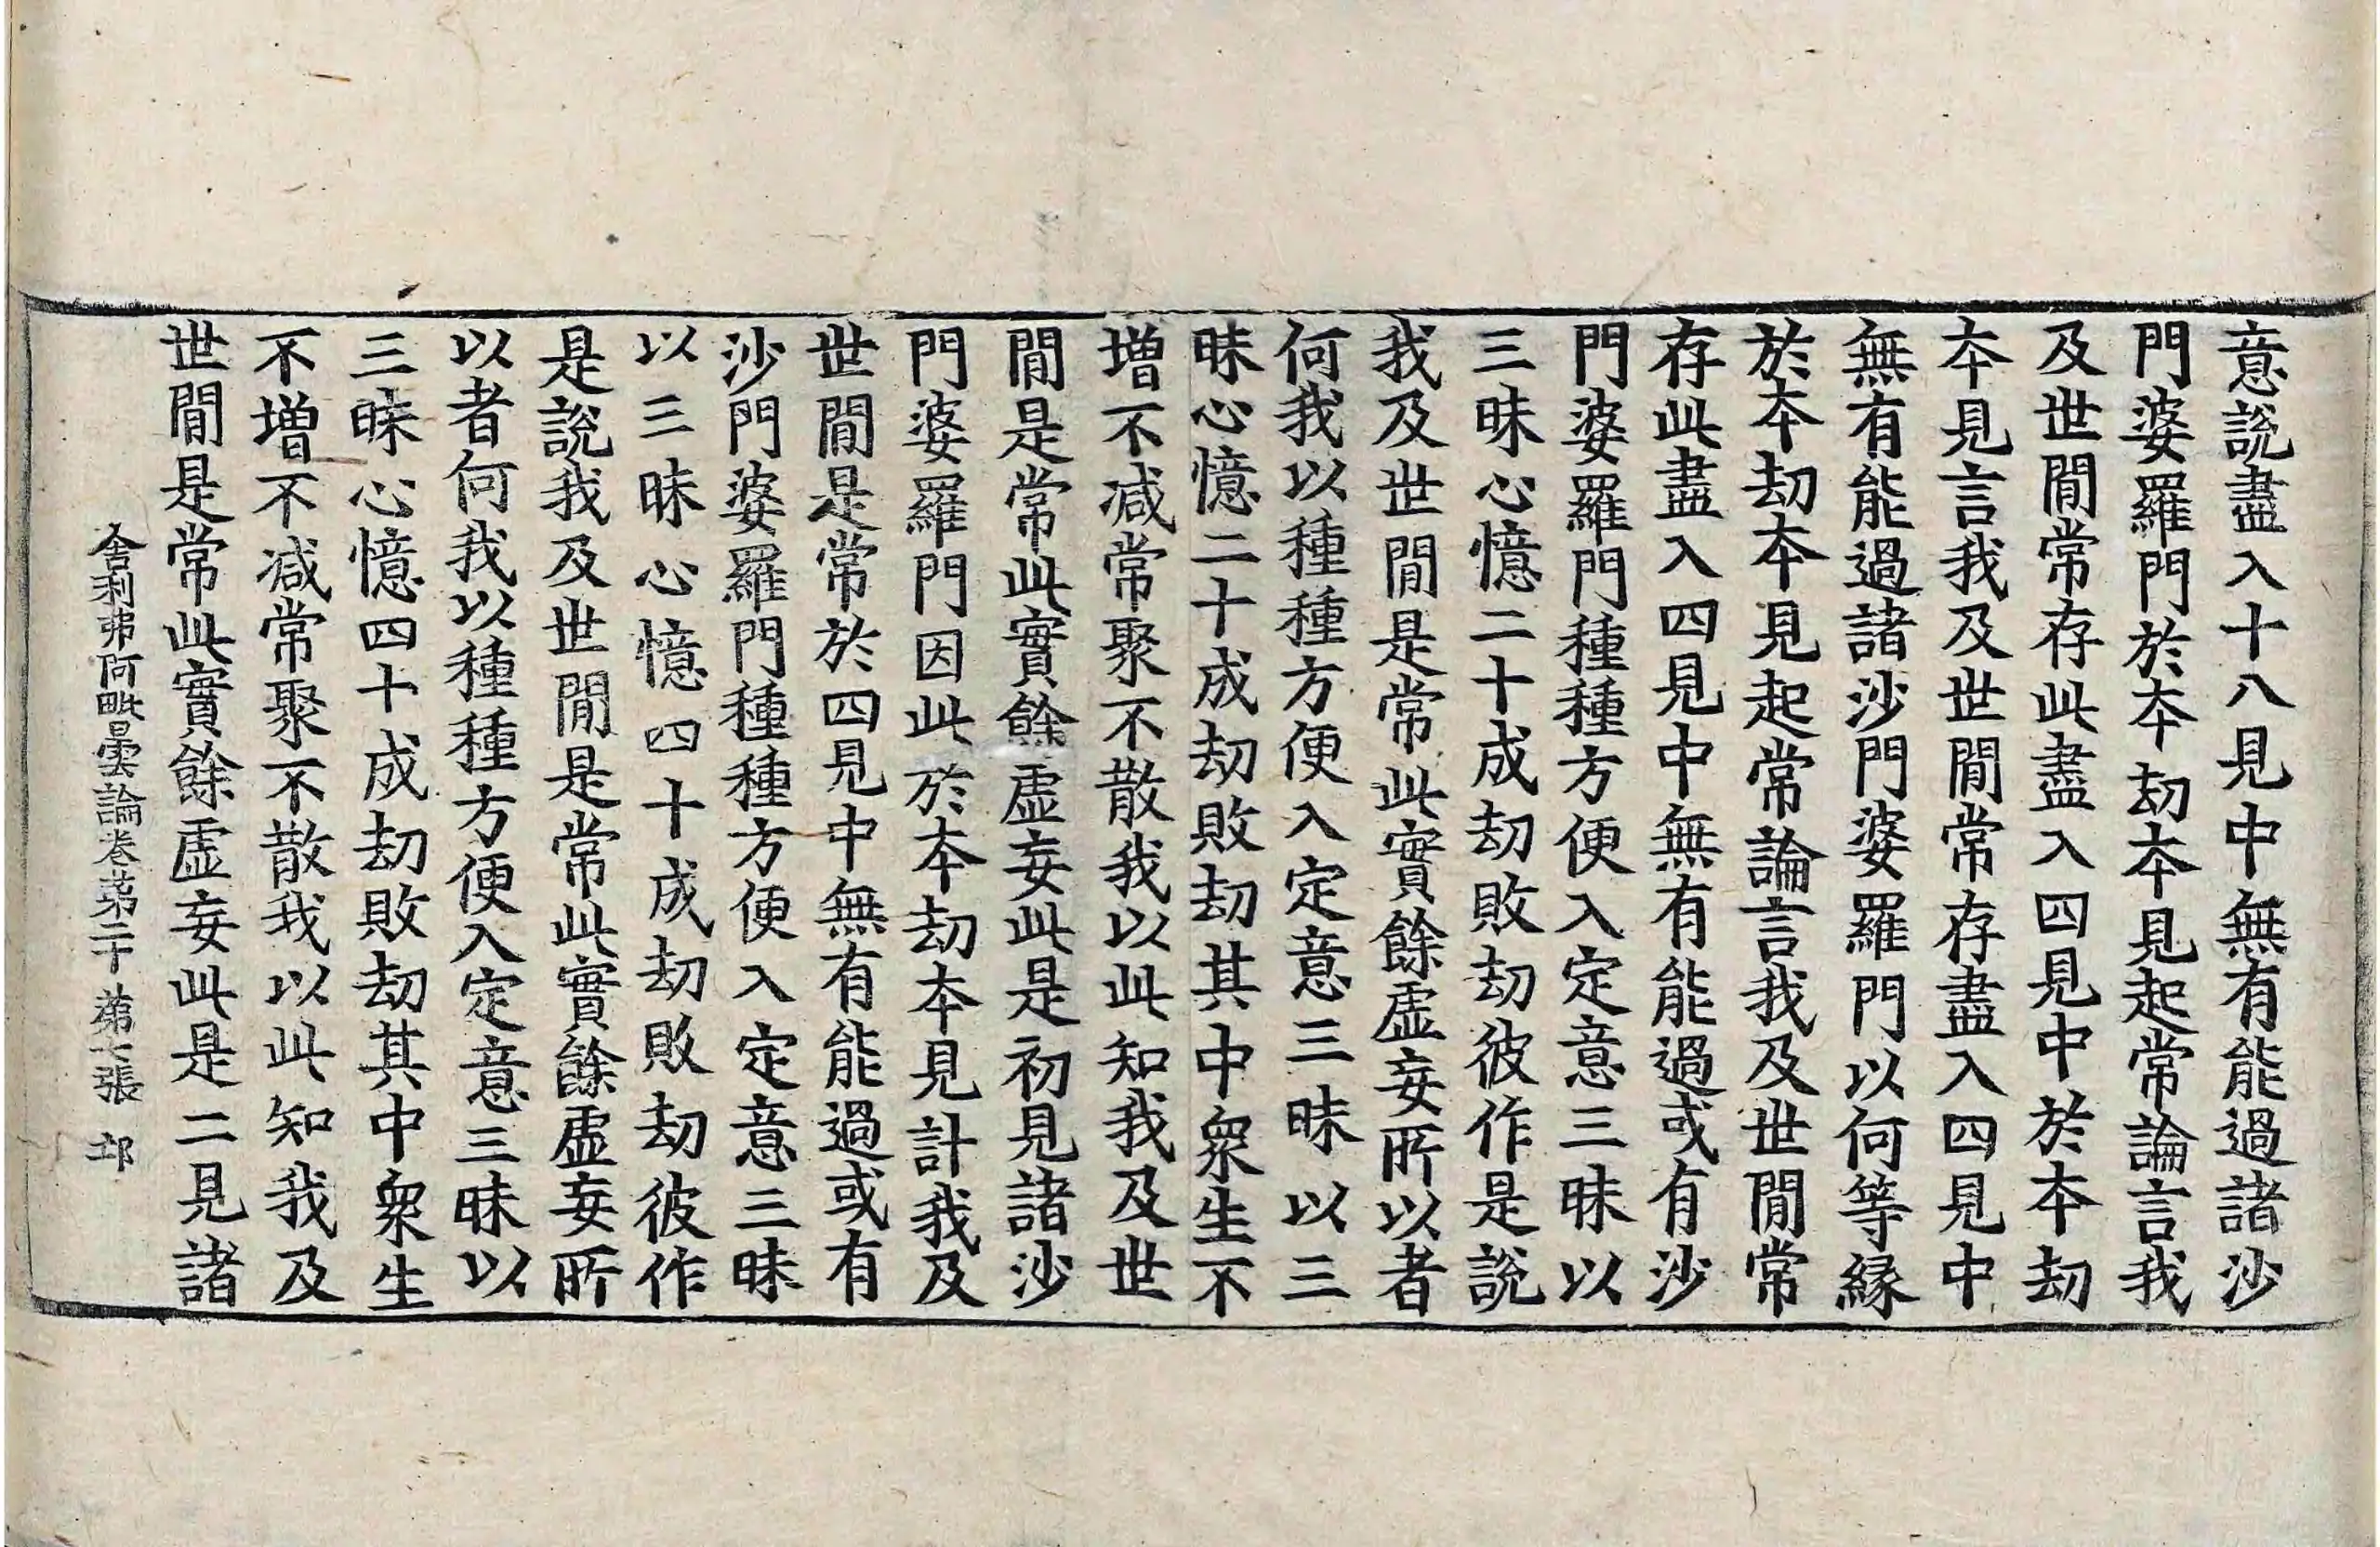 意說盡入十八見中無有能過諸沙
門婆羅門於本劫本見起常論言我
及世間常存此盡入四見中於本劫
本見言我及世間常存盡入四見中
無有能過諸沙門婆羅門以何等緣
於本劫本見起常論言我及世間常
存此盡入四見中無有能過或有沙
門婆羅門種種方便入定意三昧以
三昧心憶二十成劫敗劫彼作是說
我及世間是常此實餘虛妄所以者
何我以種種方便入定意三昧以三
昧心憶二十成劫敗劫其中衆生不
增不減常聚不散我以此知我及世
間是常此實餘虛妄此是初見諸沙
門婆羅門因此於本劫本見計我及
世間是常於四見中無有能過或有
沙門婆羅門種種方便入定意三昧
以三昧心憶四十成劫敗劫彼作
是說我及世間是常此實餘虛妄所
以者何我以種種方便入定意三昧以
三昧心憶四十成劫敗劫其中衆生
不增不減常聚不散我以此知我及
世間是常此實餘虛妄此是二見諸
舍利弗阿毗曇論卷第二十 第 張 邙